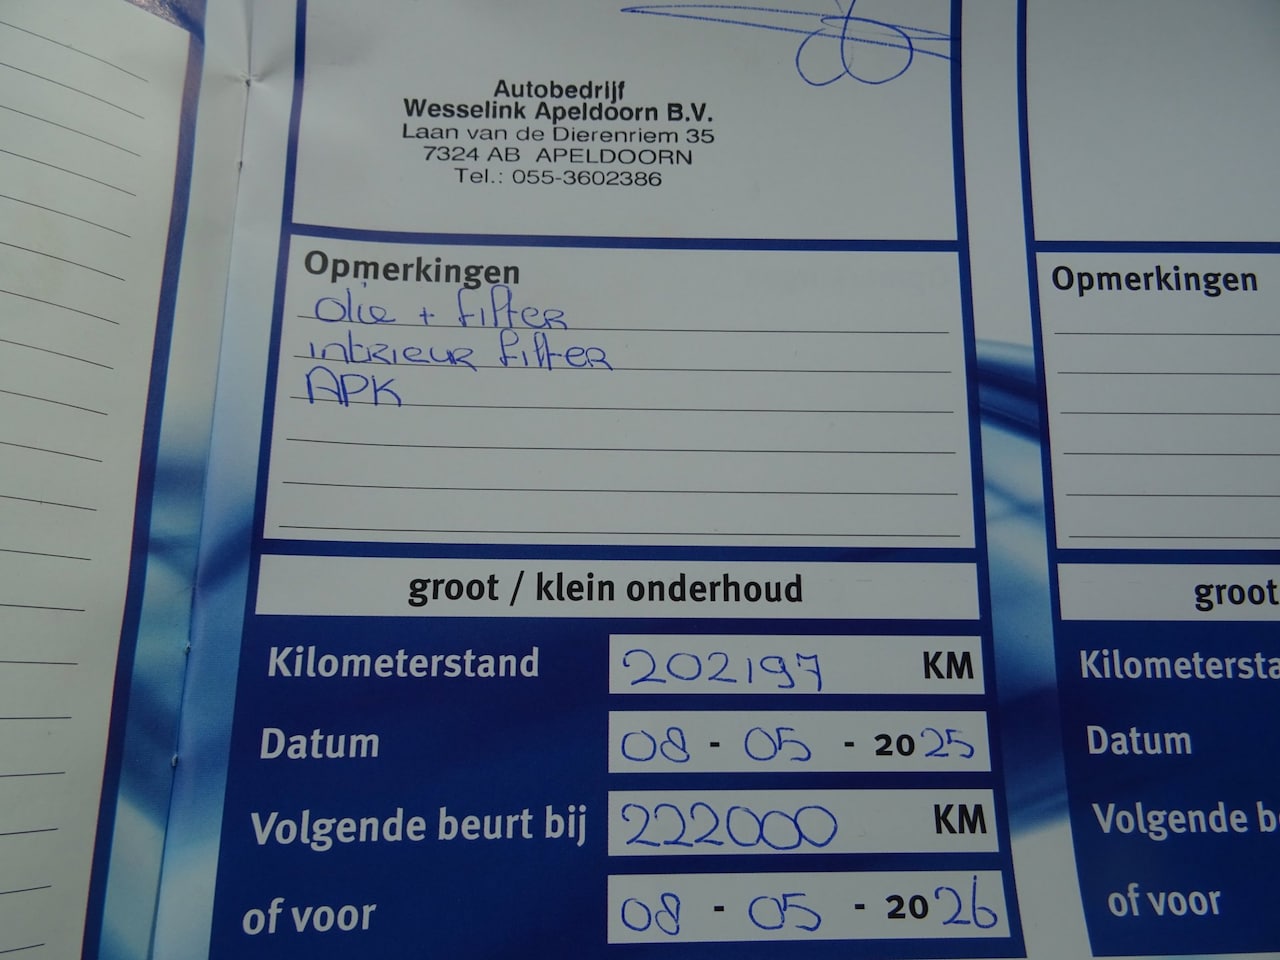 Autobedrijf
Wesselink Apeldoorn B.V.
Laan van de Dierenriem 35
7324 AB APELDOORN
Tel.: 055-3602386
Opmerkingen
Olie + filter
intrieur filter
APK
groot / klein onderhoud
Kilometerstand 202197 KM
Datum 08 - 05 - 2025
Volgende beurt bij 222000 KM
of voor 08 - 05 - 2026
Opmerkingen
groot
Kilometersta
Datum
Volgende b
of voor